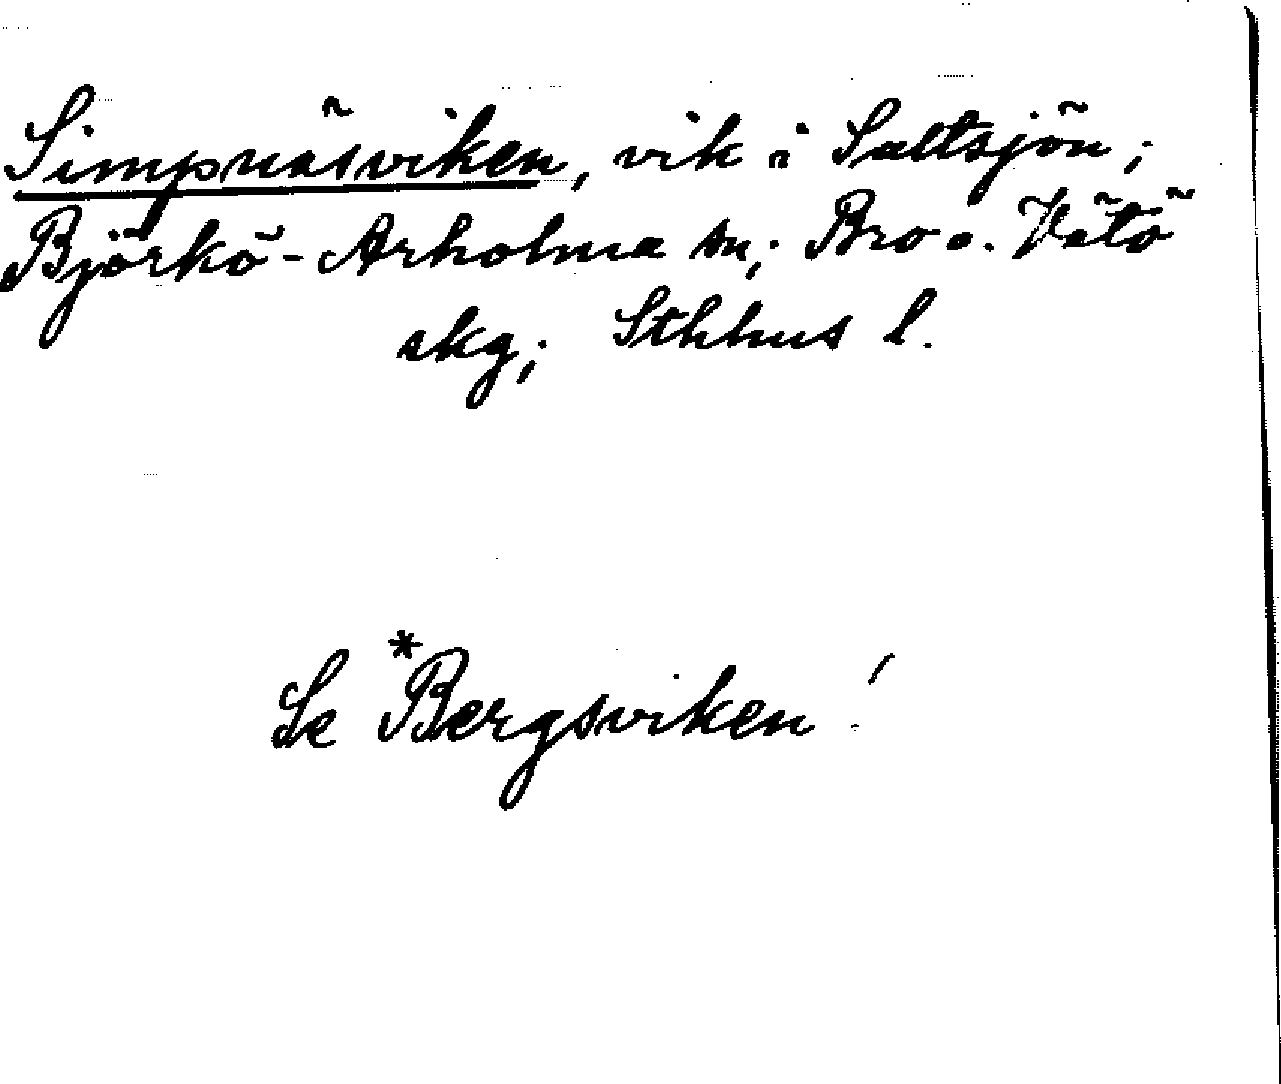 Simpnäsviken, vik i Saltsjön;
Björkö-Arholma sn; Bro o. Vätö
skg; Sthhus l.
Se *Bergsviken!